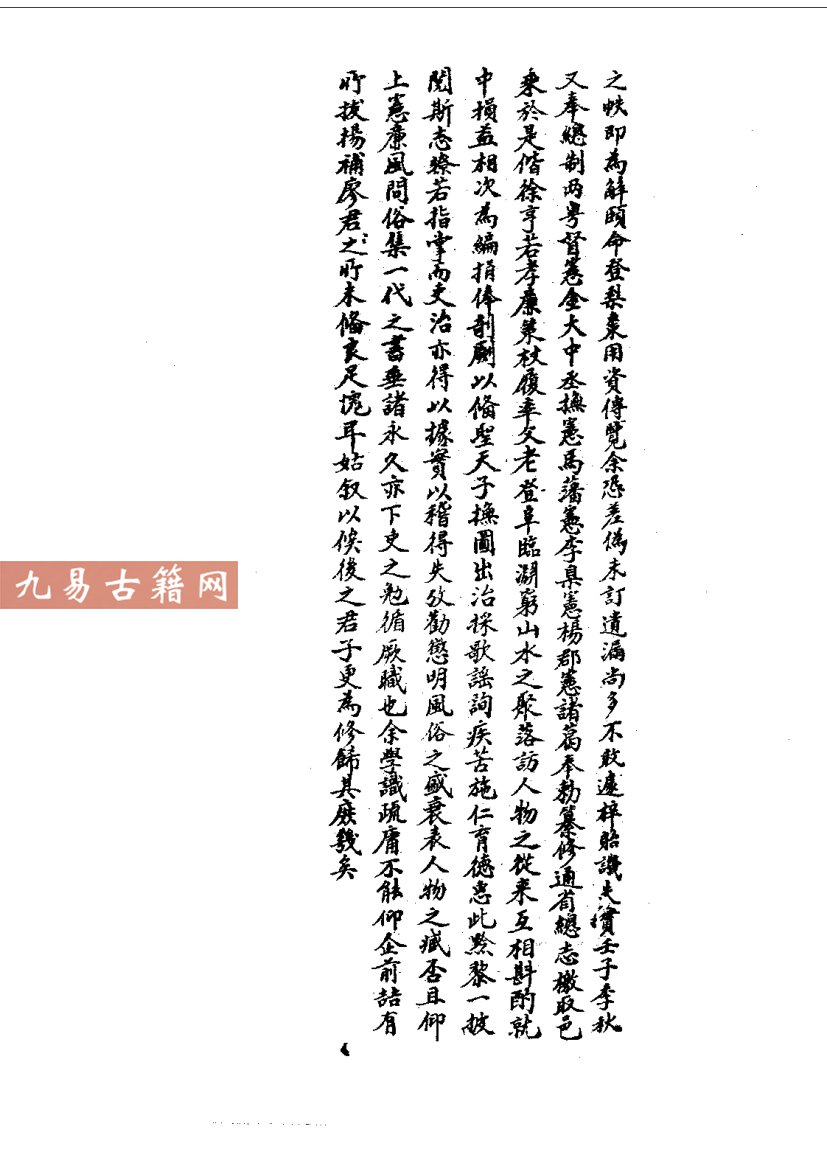 之帙即為解頤命登梨棗用資傳覽余恐差偽未訂遺漏尚多不敢遽梓貽譏大壬子季秋
又奉總制两粤督憲金大中丞撫憲馬藩憲李臬憲楊郡憲諸葛奉勅纂修通省總志檄取邑
乗於是偕徐亨若孝廉策杖履率父老登阜臨淵窮山水之聚落訪人物之從来互相斟酌就
中損益相次為編捐俸剞劂以俻聖天子撫圖出治採歌謡詢疾苦施仁育德惠此黔黎一披
閱斯志瞭若指掌而吏治亦得以據實以稽得失攷勸懲明風俗之盛衰表人物之臧否且仰
上憲廉風問俗集一代之書垂諸永久亦下吏之勉循厥職也余學識疏庸不能仰企前喆有
所拔揚補廖君之所未俻良足愧耳姑叙以俟後之君子更為修餙其庻幾矣
九易古籍网